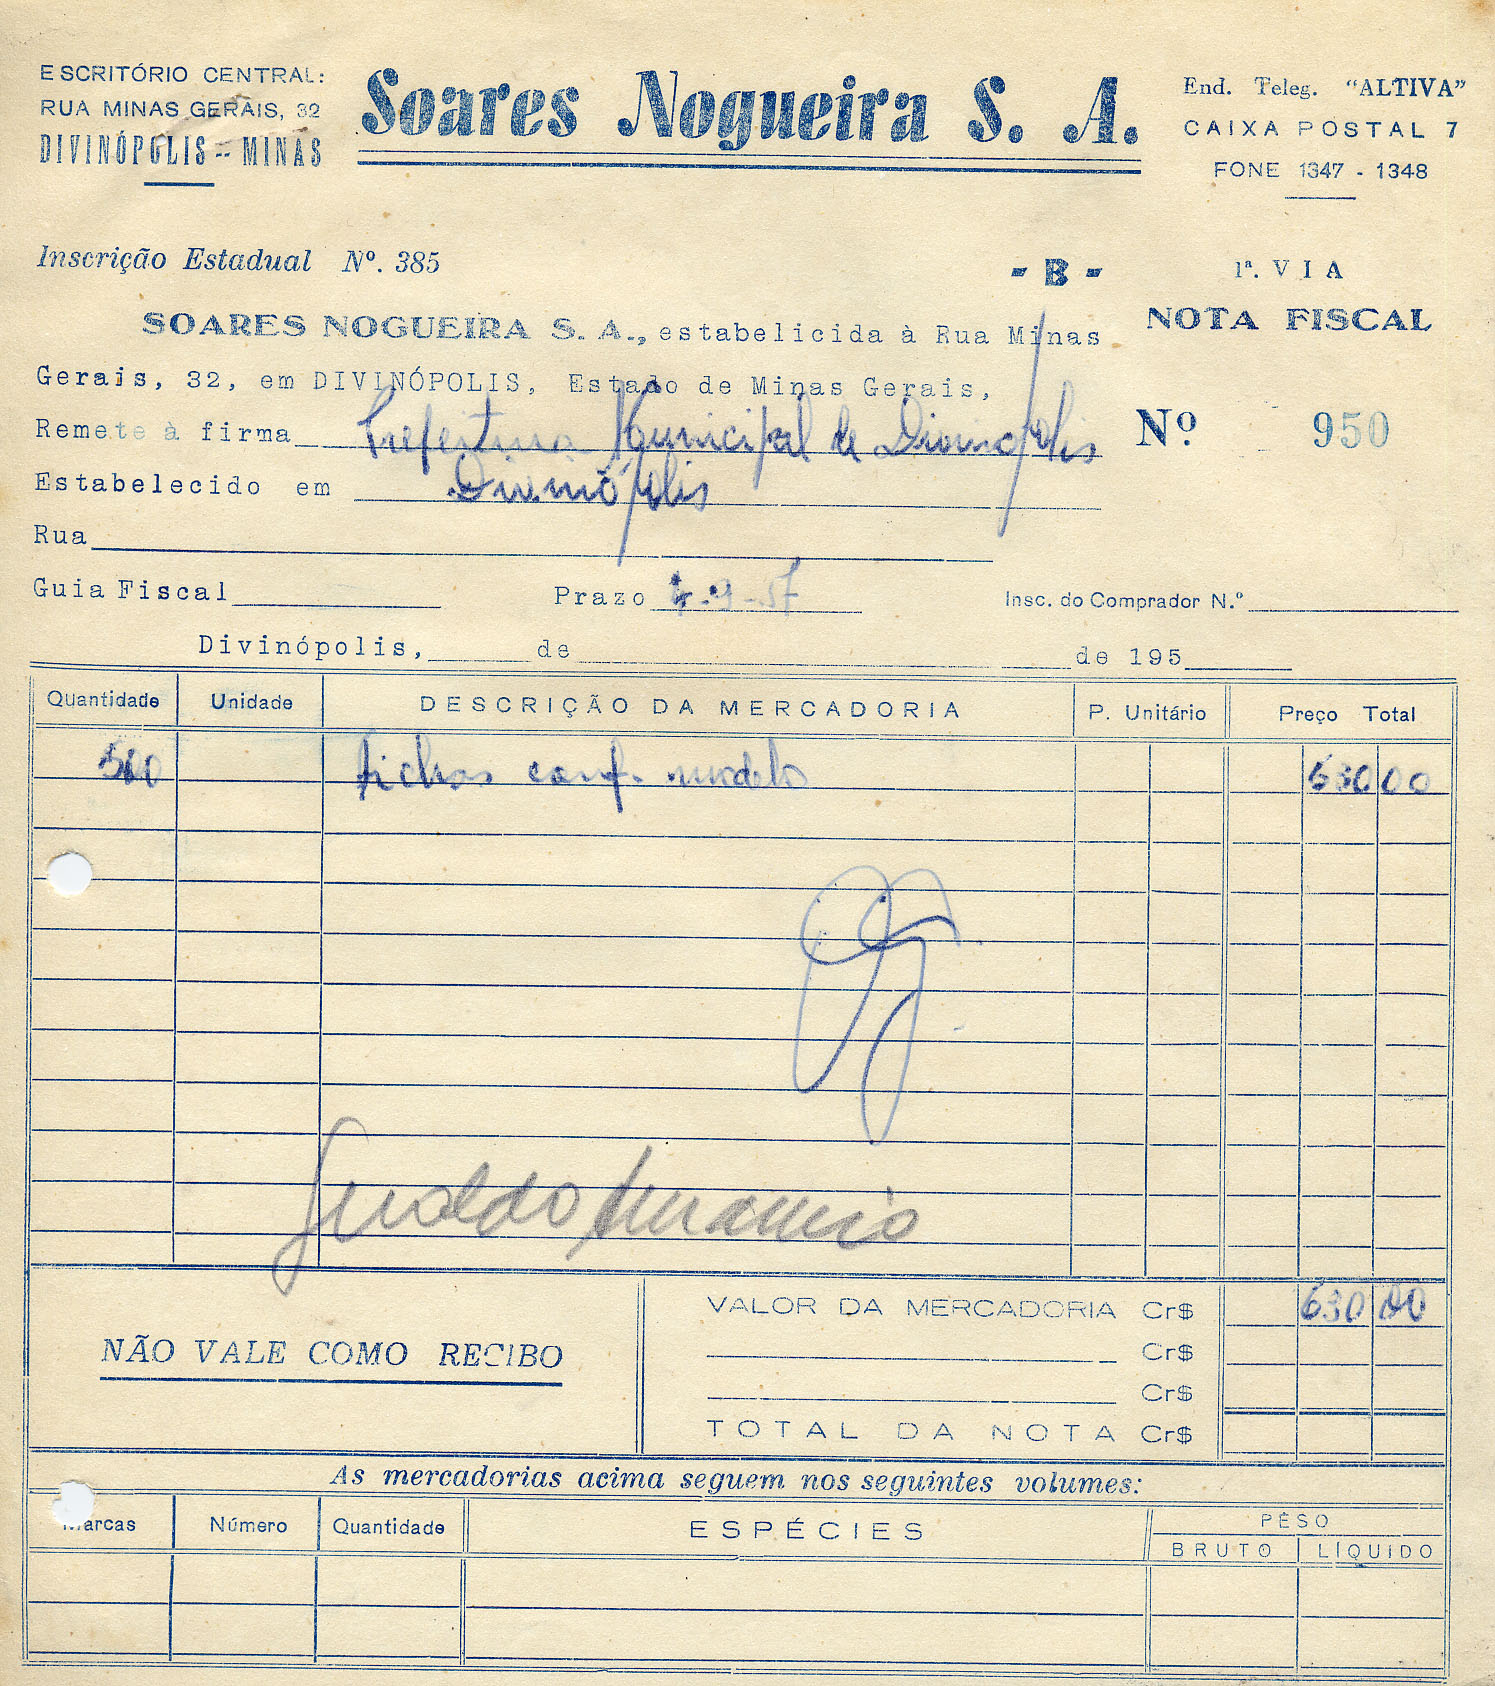 ESCRITÓRIO CENTRAL:
RUA MINAS GERAIS, 32
DIVINÓPOLIS -- MINAS
Soares Nogueira S. A.
End. Teleg. "ALTIVA"
CAIXA POSTAL 7
FONE 1347 - 1348
Inscrição Estadual Nº. 385
- B -
1ª. VIA
NOTA FISCAL
SOARES NOGUEIRA S. A., estabelicida à Rua Minas
Gerais, 32, em DIVINÓPOLIS, Estado de Minas Gerais,
Remete à firma Prefeitura Municipal de Divinópolis
Nº 950
Estabelecido em Divinópolis
Rua
Guia Fiscal Prazo 4-9-57 Insc. do Comprador N.º
Divinópolis, de de 195
Quantidade Unidade DESCRIÇÃO DA MERCADORIA P. Unitário Preço Total
fichas conf. modelo 630 00
Geraldo
VALOR DA MERCADORIA Cr$ 630 00
NÃO VALE COMO RECIBO
Cr$
Cr$
TOTAL DA NOTA Cr$
As mercadorias acima seguem nos seguintes volumes:
Marcas Número Quantidade ESPÉCIES PÊSO
BRUTO LÍQUIDO